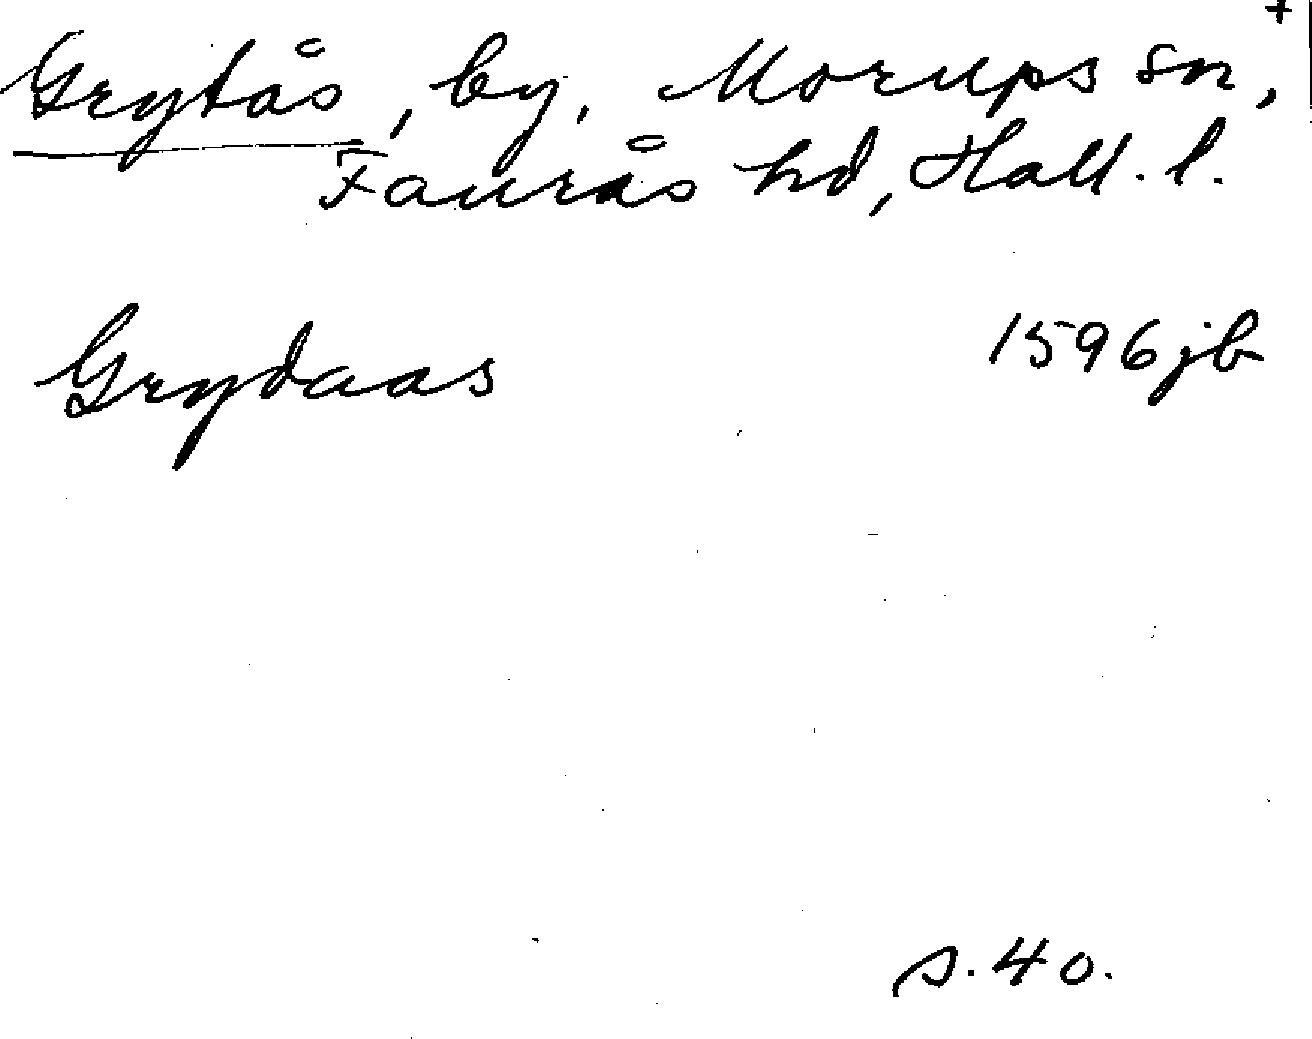 +
Grytås, by, Morups sn,
Faurås hd, Hall. l.
Grydaas 1596 jb
s. 40.